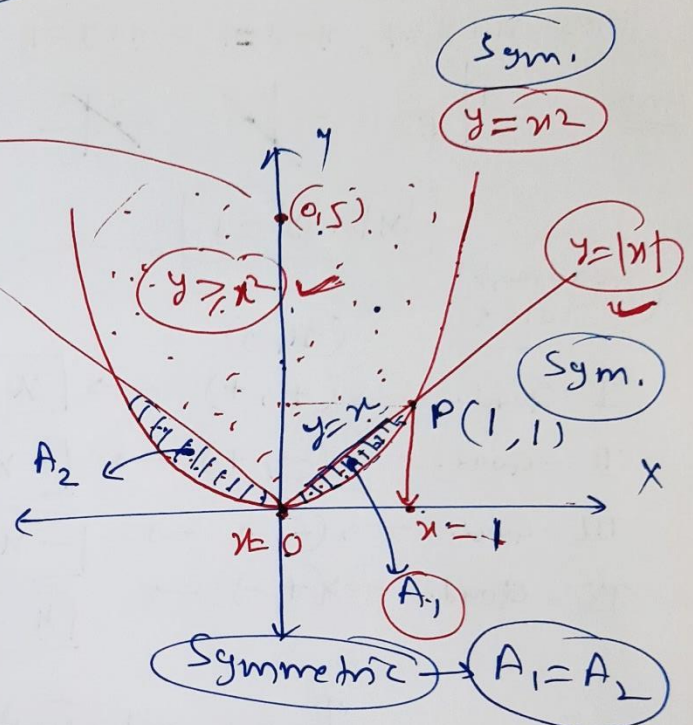 Sym.
y = x²
y
(0,5)
y = |x|
y ≥ x²
Sym.
y = x
P(1,1)
A₂
X
x = 0
x = 1
A₁
Symmetric → A₁ = A₂